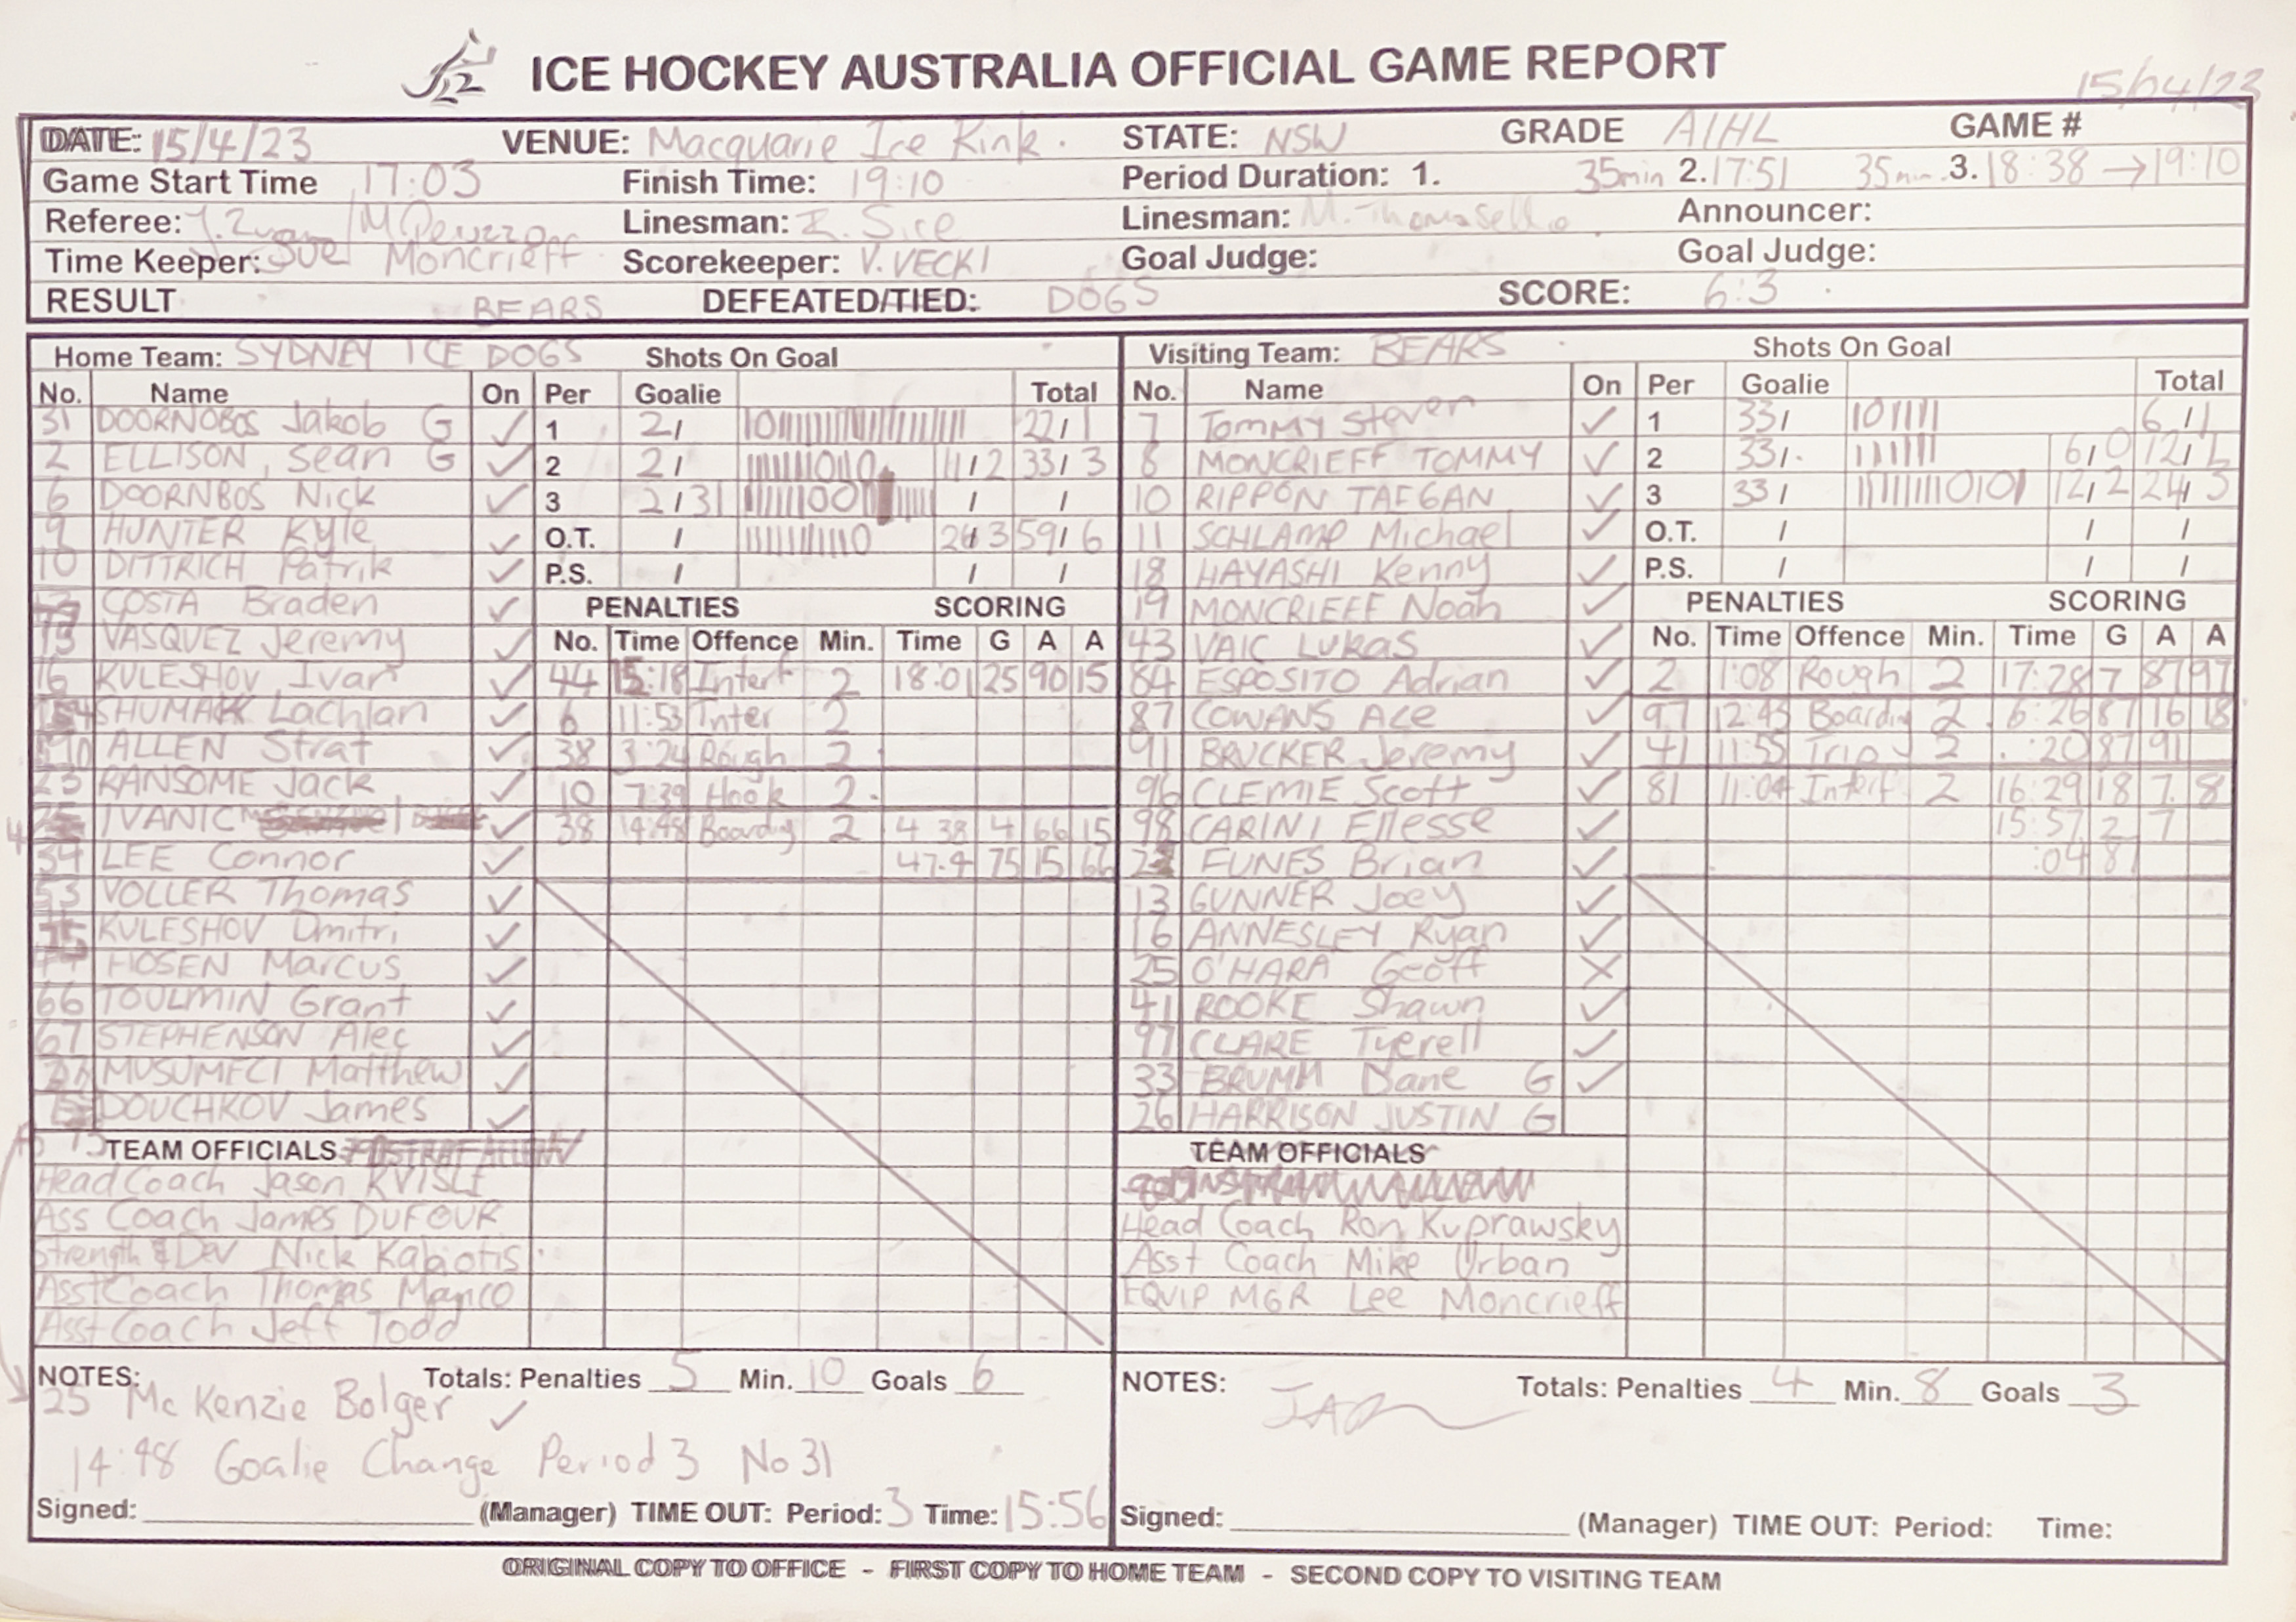 ICE HOCKEY AUSTRALIA OFFICIAL GAME REPORT
15/04/23
DATE: 15/4/23 VENUE: Macquarie Ice Rink. STATE: NSW GRADE AIHL GAME #
Game Start Time 17:03 Finish Time: 19:10 Period Duration: 1. 35min 2. 17:51 35min. 3. 18:38 → 19:10
Referee: Linesman: Linesman: M. Announcer:
Time Keeper: Sue Moncrieff Scorekeeper: V. VECKI Goal Judge: Goal Judge:
RESULT BEARS DEFEATED/TIED: DOGS SCORE: 6:3
Home Team: SYDNEY ICE DOGS Shots On Goal
No. Name On Per Goalie Total
31 DOORNOBOS Jakob G ✓ 1 2/ 22/1
2 ELLISON, Sean G ✓ 2 2/ 11/2 33/3
6 DOORNBOS Nick ✓ 3 2/31 / /
9 HUNTER Kyle ✓ O.T. / 59/6
10 DITTRICH Patrik ✓ P.S. / / /
COSTA Braden ✓ PENALTIES SCORING
VASQUEZ Jeremy ✓ No. Time Offence Min. Time G A A
16 KULESHOV Ivan ✓ 44 15:18 Interf 2 18:01 25 90 15
SHUMAK Lachlan ✓ 6 11:53 Inter 2
ALLEN Strat ✓ 38 3:24 Rough 2
23 RANSOME Jack ✓ 10 7:39 Hook 2
IVANIC ✓ 38 14:48 Boarding 2 4 38 4 66 15
LEE Connor ✓ 47.4 75 15 66
53 VOLLER Thomas ✓
KULESHOV Dmitri ✓
HOSEN Marcus ✓
66 TOULMIN Grant ✓
67 STEPHENSON Alec ✓
MUSUMECI Matthew ✓
DOUCHKOV James ✓
TEAM OFFICIALS
Head Coach Jason KVISLE
Ass Coach James DUFOUR
Strength & Dev Nick Kabiotis
Asst Coach Thomas Manco
Asst Coach Jeff Todd
NOTES: Totals: Penalties 5 Min. 10 Goals 6
25 McKenzie Bolger ✓
14:48 Goalie Change Period 3 No 31
Signed: (Manager) TIME OUT: Period: 3 Time: 15:56
Visiting Team: BEARS Shots On Goal
No. Name On Per Goalie Total
7 TOMMY Steven ✓ 1 33/ 6/1
8 MONCRIEFF TOMMY ✓ 2 33/ 6/0 12/1
10 RIPPON TAEGAN ✓ 3 33/ 12/2 24/3
11 SCHLAMP Michael ✓ O.T. / / /
18 HAYASHI Kenny ✓ P.S. / / /
19 MONCRIEFF Noah ✓ PENALTIES SCORING
43 VAIC LUKAS ✓ No. Time Offence Min. Time G A A
84 ESPOSITO Adrian ✓ 2 1:08 Rough 2 17:28 7 87 97
87 COWANS Ace ✓ 97 12:45 Boarding 2 6:26 87 16 18
91 BRUCKER Jeremy ✓ 41 11:55 Trip 2 :20 87 91
96 CLEMIE Scott ✓ 81 11:04 Interf 2 16:29 18 7 8
98 CARINI Ellesse ✓ 15:57 2 7
FUNES Brian ✓ :04 87
13 GUNNER Joey ✓
16 ANNESLEY Ryan ✓
25 O'HARA Geoff X
41 ROOKE Shawn ✓
97 CLARE Tyerell ✓
33 BRUMM Dane G ✓
26 HARRISON JUSTIN G
TEAM OFFICIALS
Head Coach Ron Kuprawsky
Asst Coach Mike Urban
EQUIP MGR Lee Moncrieff
NOTES: Totals: Penalties 4 Min. 8 Goals 3
Signed: (Manager) TIME OUT: Period: Time:
ORIGINAL COPY TO OFFICE - FIRST COPY TO HOME TEAM - SECOND COPY TO VISITING TEAM